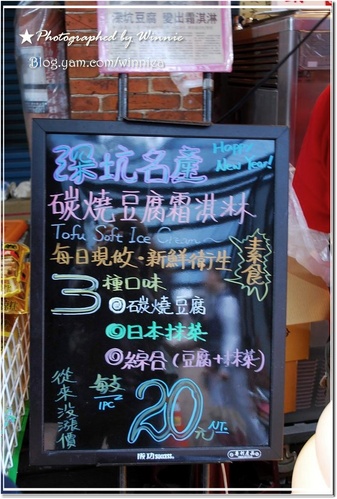 ★ Photographed by Winnie
Blog.yam.com/winniga
深坑豆腐 變出霜淇淋
深坑名產
Happy
New Year!
碳燒豆腐霜淇淋
Tofu Soft Ice Cream
每日現做·新鮮衛生
素食
3種口味
碳燒豆腐
日本抹茶
綜合(豆腐+抹茶)
從來沒漲價
每支
1PC
20元 NT.
成功